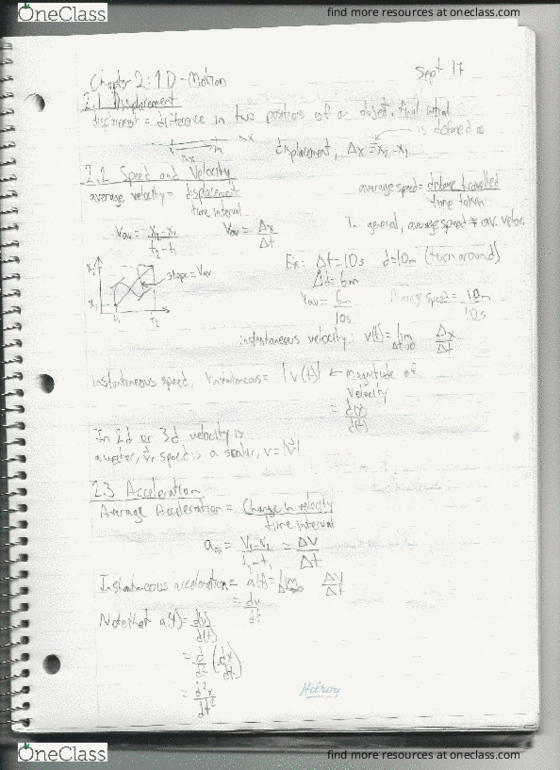 OneClass
find more resources at oneclass.com
Chapter 2: 1D-Motion
Sept 17
2.1 Displacement
displacement = difference in two positions of a object, final initial
is defined as
displacement, Δx = x₂-x₁
2.2 Speed and Velocity
average velocity = displacement / time interval
average speed = distance travelled / time taken
Vav = x₂-x₁ / t₂-t₁
Vav = Δx / Δt
In general, average speed ≠ av. veloc.
x₂
x₁
t₁
t₂
slope = Vav
Ex: Δt=10s d=10m (turn around)
Δd=6m
Vav = 6m / 10s
Average speed = 10m / 10s
instantaneous velocity: v(t) = lim Δt→0 Δx / Δt
instantaneous speed, Vinstantaneous = |v(t)| ← magnitude of velocity
= d(x) / d(t)
In 2d or 3d velocity is
a vector, v⃗, speed is a scalar, v = |v⃗|
2.3 Acceleration
Average Acceleration = Change in velocity / time interval
aav = V₂-V₁ / t₂-t₁ = ΔV / Δt
Instantaneous acceleration = a(t) = lim Δt→0 ΔV / Δt
= dv / dt
Note that a(t) = d(v) / d(t)
= d / dt (dx / dt)
= d²x / dt²
Hilroy
OneClass
find more resources at oneclass.com